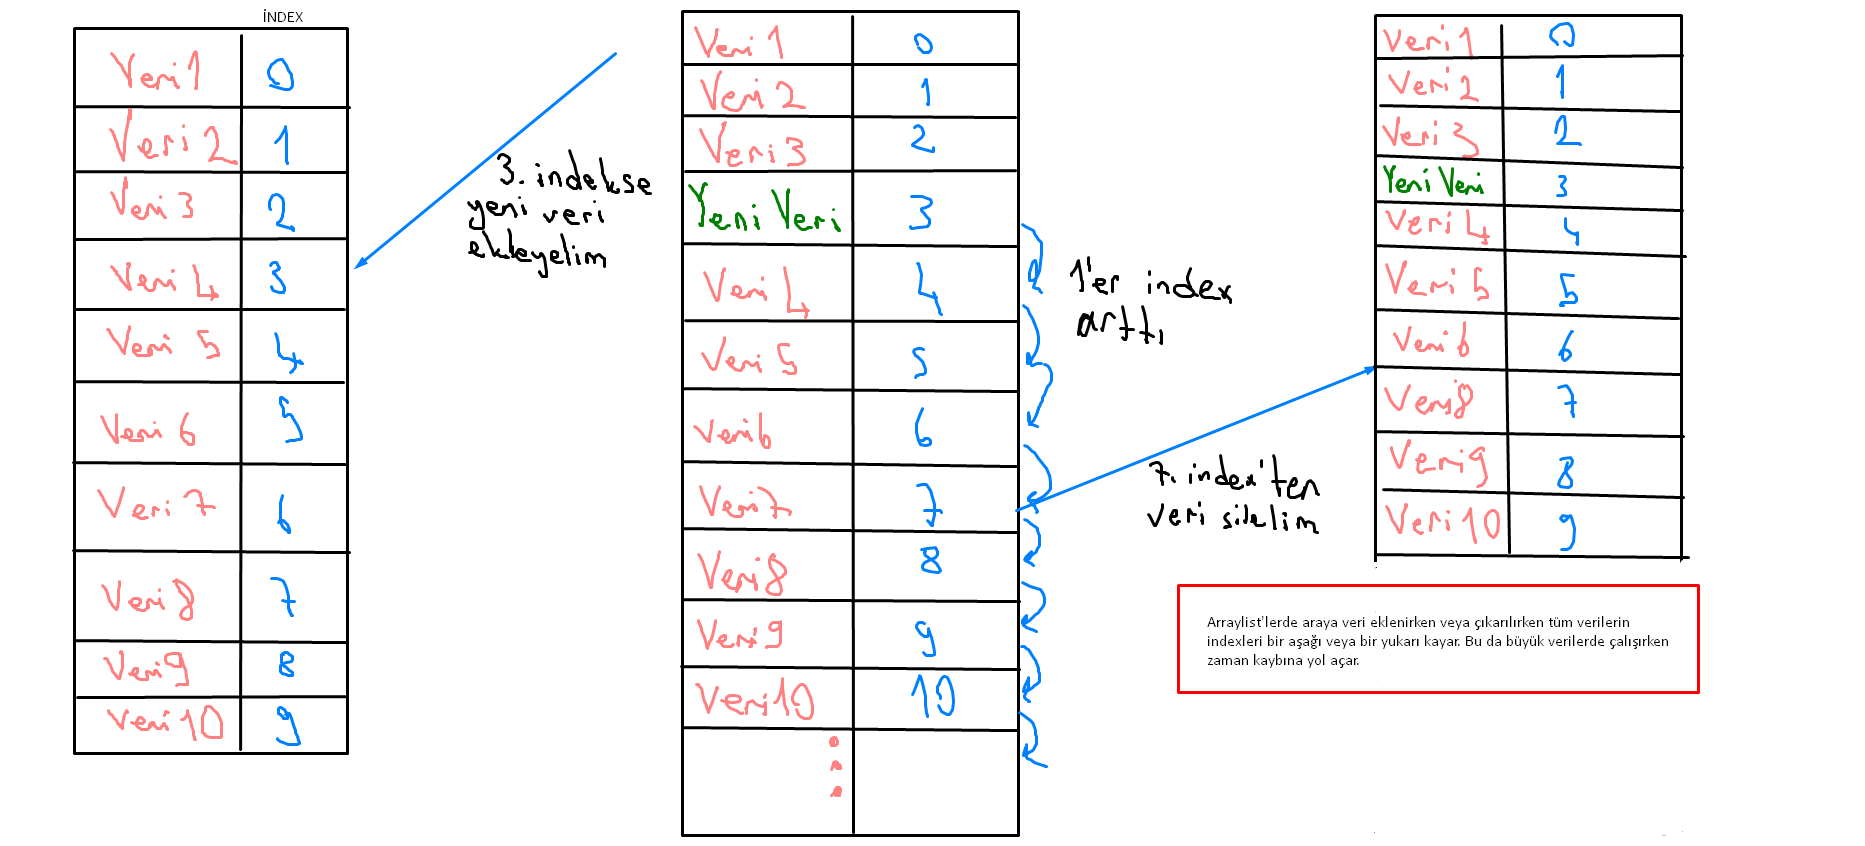 İNDEX
Veri 1 0
Veri 2 1
Veri 3 2
Veri 4 3
Veri 5 4
Veri 6 5
Veri 7 6
Veri 8 7
Veri 9 8
Veri 10 9
3. indekse
yeni veri
ekleyelim
Veri 1 0
Veri 2 1
Veri 3 2
Yeni Veri 3
Veri 4 4
Veri 5 5
Veri 6 6
Veri 7 7
Veri 8 8
Veri 9 9
Veri 10 10
1'er index
arttı
7. index'ten
veri silelim
Veri 1 0
Veri 2 1
Veri 3 2
Yeni Veri 3
Veri 4 4
Veri 5 5
Veri 6 6
Veri 8 7
Veri 9 8
Veri 10 9
Arraylist'lerde araya veri eklenirken veya çıkarılırken tüm verilerin
indexleri bir aşağı veya bir yukarı kayar. Bu da büyük verilerde çalışırken
zaman kaybına yol açar.